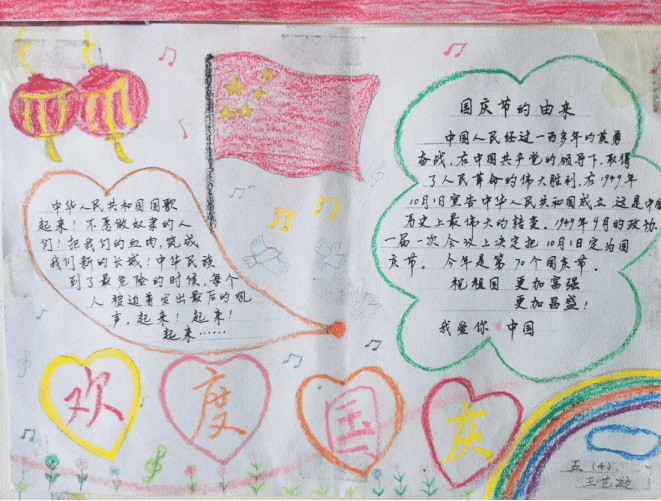 中华人民共和国国歌
起来！不愿做奴隶的人
们！把我们的血肉，筑成
我们新的长城！中华民族
到了最危险的时候，每个
人被迫着发出最后的吼
声。起来！起来！
起来……
国庆节的由来
中国人民经过一百多年的英勇
奋战，在中国共产党的领导下，取得
了人民革命的伟大胜利，在1949年
10月1日宣告中华人民共和国成立，这是中国
历史上最伟大的转变。1949年9月的政协
一届一次会议上决定把10月1日定为国
庆节。今年是第70个国庆节。
祝祖国 更加富强
更加昌盛！
我爱你 中国
欢度国庆
五（4）
王艺凝